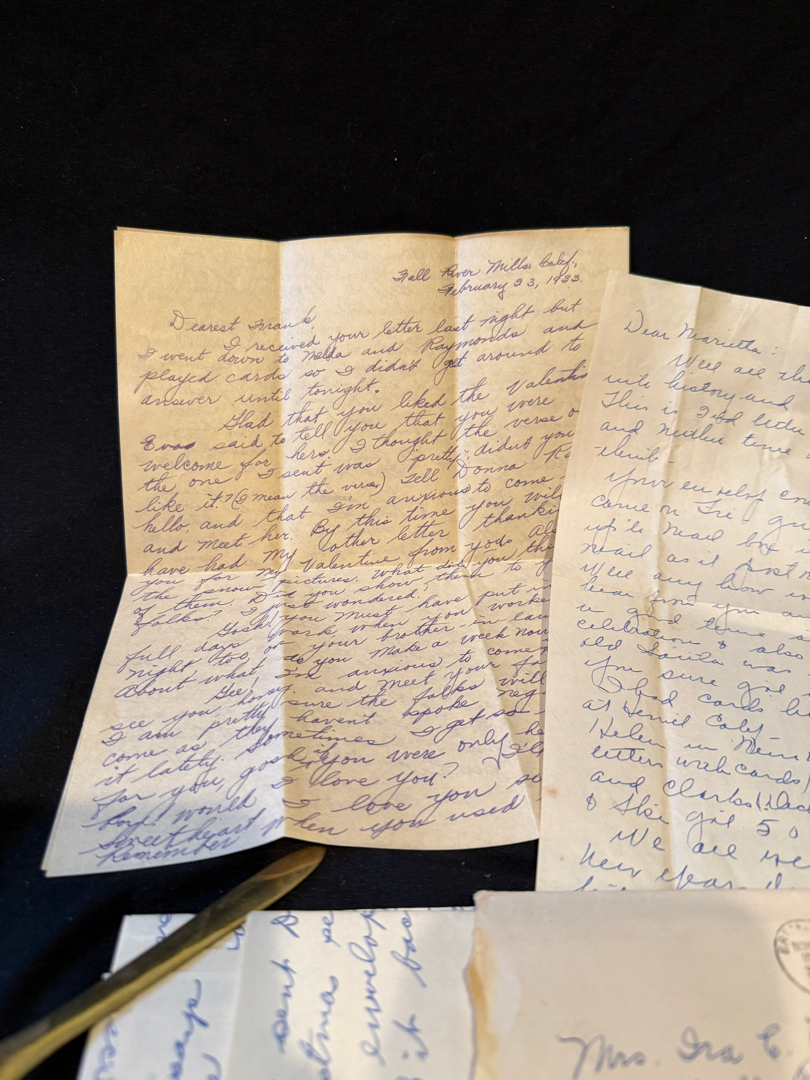 Fall River Mills, Calif.,
February 23, 1933.
Dearest Frank,
I received your letter last night but
I went down to Melda and Raymonds and
played cards so I didn't get around to
answer until tonight.
Glad that you liked the Valentin
Evas said to tell you that you were
welcome for hers. I thought the verse o
the one I sent was pretty; didn't you
like it? (I mean the verse) Tell Donna
hello and that I'm anxious to come
and meet her. By this time you will
have had my other letter thanki
you for my Valentine from you. Al
the snow pictures. What did you thi
of them. Did you show them to y
folks? I just wondered!
Gosh! you must have put i
full days work when you worke
night too, on your brother-in-law
About what do you make a week now
Gee! I'm anxious to come
see you, honey. and meet your fo
I am pretty sure the folks will
come as they haven't spoke reg
it lately. Sometimes I get so
for you, gosh if you were only he
boy! would I love you? I'll
Sweetheart I love you so
Remember when you used
Dear Marietta:
Well all th
with history and
This is 2nd letter
and neither time
think-
Your envelop
came on Fri-
up the mail but
mail as it
Well any how
hear from you
a good time
celebration & also
old Santa was
you sure
I had cards
at Hemet Calif-
Helen in
letters with cards
and Clarks
& Elsie
We all
New year
sent
envelop
it bac
Mrs. Ira C.